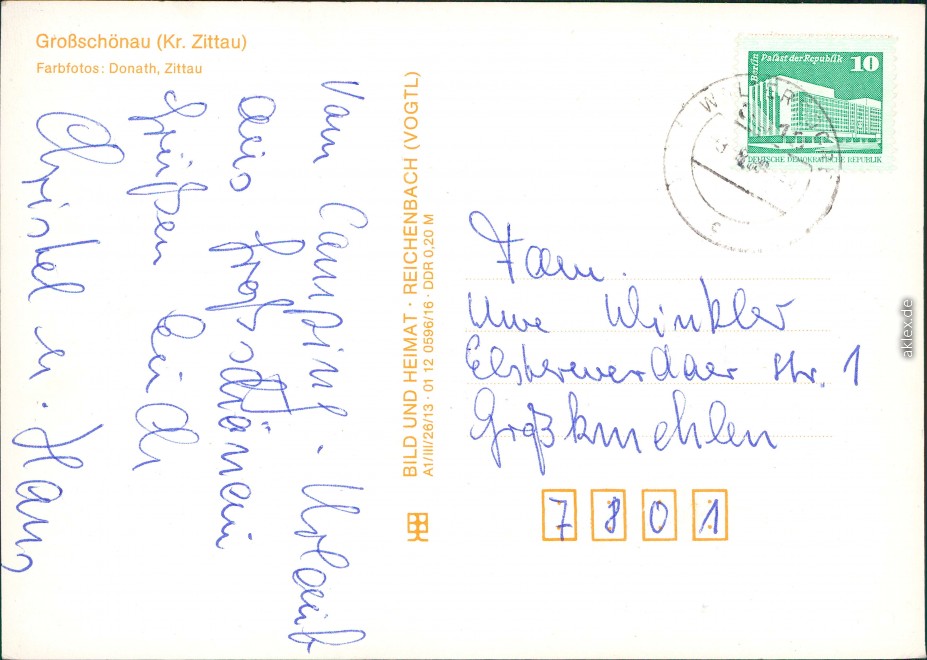 Großschönau (Kr. Zittau)
Farbfotos: Donath, Zittau
Vom Camping. Urlaub
aus Großschönau
grüßen Euch
Christel u. Hans
BILD UND HEIMAT · REICHENBACH (VOGTL)
A1/III/26/13 · 01 12 0596/16 · DDR 0,20 M
Berlin Palast der Republik 10
DEUTSCHE DEMOKRATISCHE REPUBLIK
Fam.
Uwe Winkler
Elsterwerdaer Str. 1
Großkmehlen
7801
aklex.de